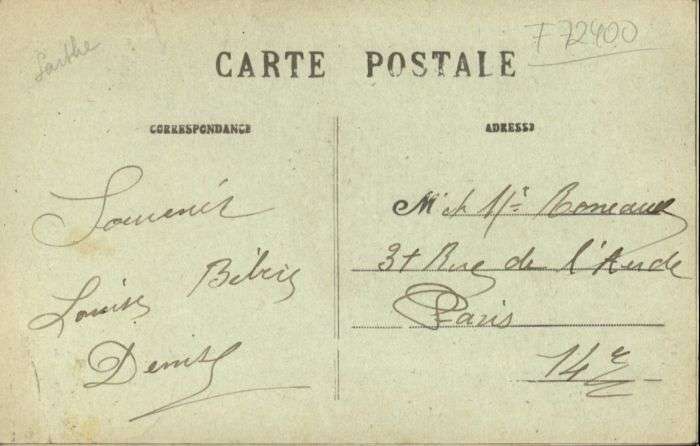 Sarthe
F 72400
CARTE POSTALE
CORRESPONDANCE
ADRESSE
Souvenir
Louise Bébert
Denise
Mr et Mme
37 Rue de l'Aude
Paris
14e